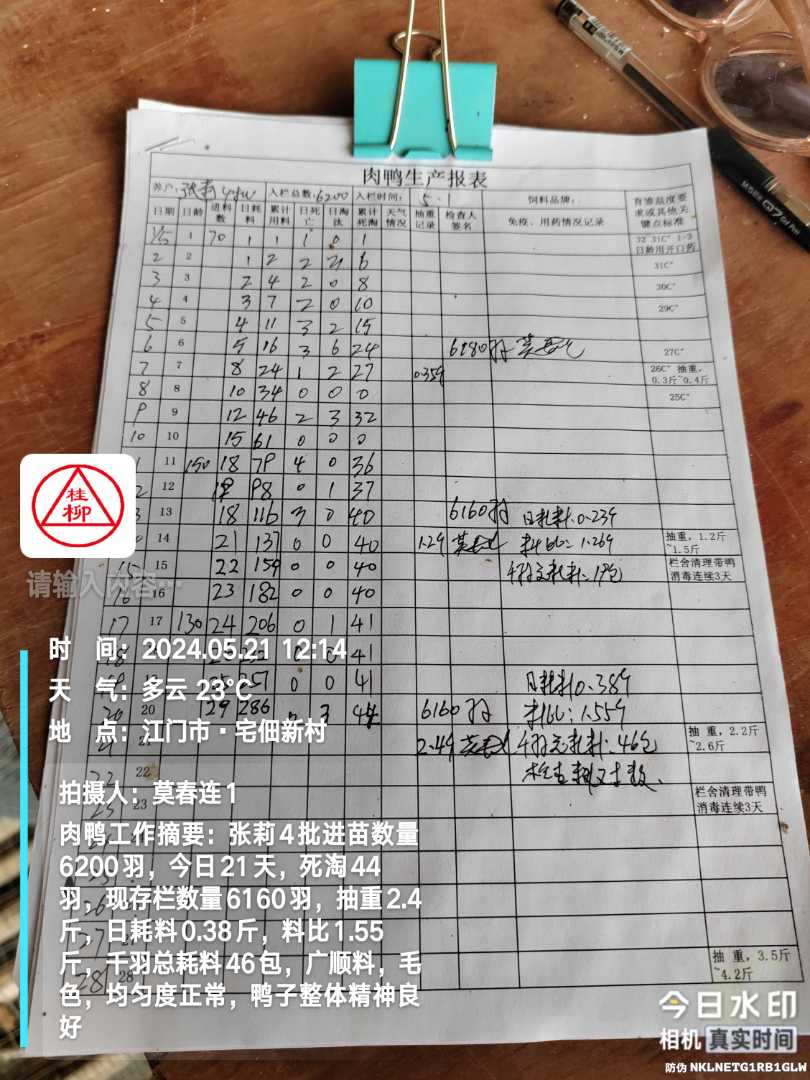 肉鸭生产报表
养户: 张莉 入栏总数: 6200 入栏时间: 5.1 饲料品牌: 育雏温度要求或其他关键点标准
日期 日龄 进料数 日耗料 累计用料 日死亡 日淘汰 累计死淘 天气情况 抽重记录 检查人签名 免疫、用药情况记录
1/5 1 70 1 1 1 0 1 32~31C° 1-3日龄用开口药
2 2 1 2 2 6 31C°
3 3 2 4 2 0 8 30C°
4 4 3 7 2 0 10 29C°
5 5 4 11 3 2 15
6 6 5 16 3 6 24 6180羽 27C°
7 7 8 24 1 2 27 0.359 26C° 抽重,0.3斤~0.4斤
8 8 10 34 0 0 0 25C°
9 9 12 46 2 3 32
10 10 15 61 0 0 0
11 150 18 79 4 0 36
12 98 0 1 37
13 18 116 3 0 40 6160羽 日耗料:0.239
14 21 137 0 0 40 1.29 料比: 1.269 抽重,1.2斤~1.5斤
15 15 22 159 0 0 40 栏舍清理带鸭消毒连续3天
16 16 23 182 0 0 40
17 17 130 24 206 0 1 41
41
257 0 0 41 日耗料0.389
20 20 29 286 0 3 44 6160羽 料比: 1.559
21 2.49 千羽总耗料: 46包 抽重,2.2斤~2.6斤
22
23 栏舍清理带鸭消毒连续3天
26
27
28 28 抽重,3.5斤~4.2斤
桂柳
请输入内容…
时 间: 2024.05.21 12:14
天 气: 多云 23°C
地 点: 江门市·宅佃新村
拍摄人: 莫春连1
肉鸭工作摘要: 张莉4批进苗数量
6200羽，今日21天，死淘44
羽，现存栏数量6160羽，抽重2.4
斤，日耗料0.38斤，料比1.55
斤，千羽总耗料46包，广顺料，毛
色，均匀度正常，鸭子整体精神良
好
今日水印
相机 真实时间
防伪 NKLNETG1RB1GLW